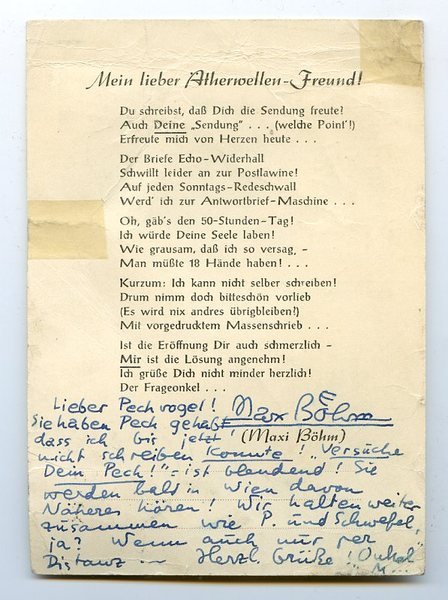 Mein lieber Ätherwellen-Freund!
Du schreibst, daß Dich die Sendung freute?
Auch Deine „Sendung" . . . (welche Point'!)
Erfreute mich von Herzen heute . . .
Der Briefe Echo-Widerhall
Schwillt leider an zur Postlawine!
Auf jeden Sonntags-Redeschwall
Werd' ich zur Antwortbrief-Maschine . . .
Oh, gäb's den 50-Stunden-Tag!
Ich würde Deine Seele laben!
Wie grausam, daß ich so versag, -
Man müßte 18 Hände haben! . . .
Kurzum: Ich kann nicht selber schreiben!
Drum nimm doch bitteschön vorlieb
(Es wird nix andres übrigbleiben!)
Mit vorgedrucktem Massenschrieb . . .
Ist die Eröffnung Dir auch schmerzlich -
Mir ist die Lösung angenehm!
Ich grüße Dich nicht minder herzlich!
Der Frageonkel . . .
Lieber Pechvogel! Maxi Böhm
Sie haben Pech gehabt
dass ich bis jetzt (Maxi Böhm)
nicht schreiben konnte! „Versuche
Dein Pech!" = ist blendend! Sie
werden bald in Wien davon
Näheres hören! Wir halten weiter
zusammen wie P. und Schwefel,
ja? Wenn auch nur per
Distanz --- Herzl. Grüße! Onkel
M.